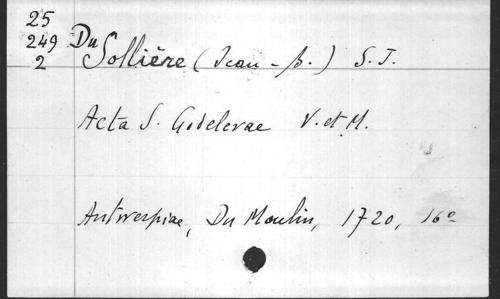 25
249
2
Du Sollière (Jean-B.) S.J.
Acta S. Godelevae V. et M.
Antverpiae, Du Moulin, 1720, 16º